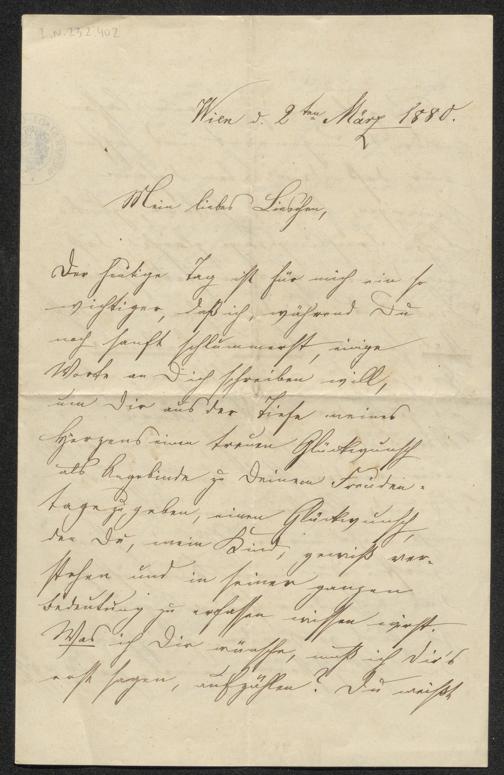 I.N. 232.402
Wien d. 2ten März 1880.
Mein liebes Lieschen,
Der heutige Tag ist für mich ein so
wichtiger, daß ich, während Du
noch sanft schlummerst, einige
Worte an Dich schreiben will,
um Dir aus der Tiefe meines
Herzens einen treuen Glückwunsch
als Angebinde zu Deinem Freuden-
tage zu geben, einen Glückwunsch,
den Du, mein Kind, gewiß ver-
stehen und in seiner ganzen
Bedeutung zu erfassen wissen wirst.
Was ich Dir wünsche, muß ich Dir's
erst sagen, aufzählen? Du weißt